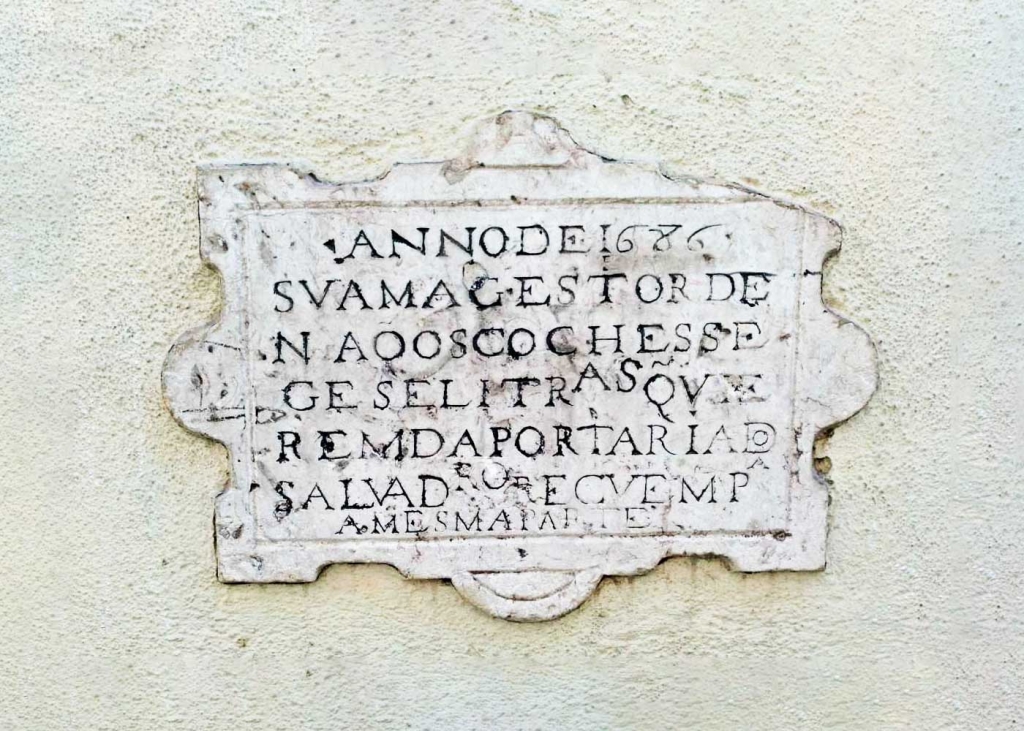 ANNODE1686
SVAMAGESTORDE
NAÕOSCOCHESSE
GESELITRASQ̃VIE
REMDAPORTARIADO
SALVADORRECVEMPA
AMESMAPARTE